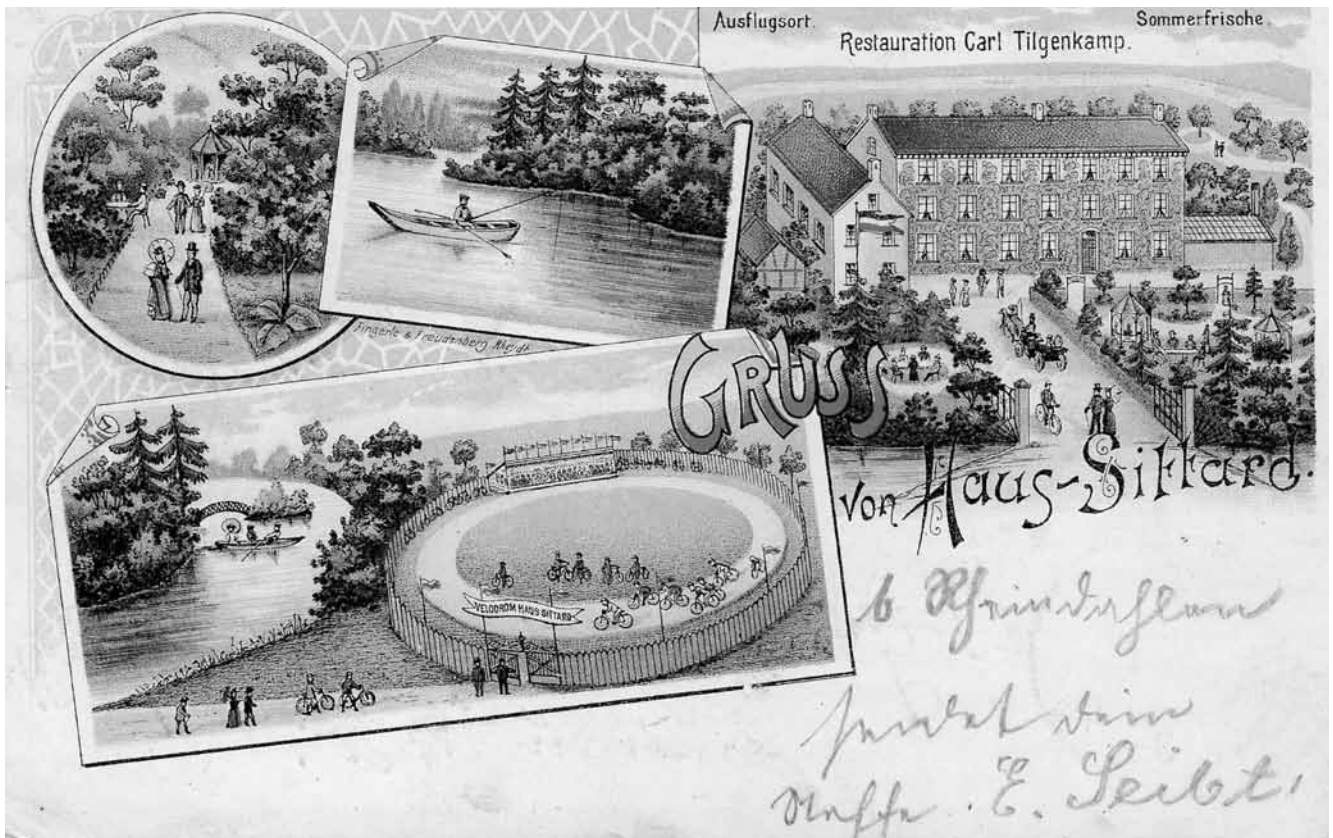 Ausflugsort.
Sommerfrische.
Restauration Carl Tilgenkamp.
Fingerle & Freudenberg Rheydt
GRUSS
von Haus-Sittard.
VELODROM HAUS SITTARD
b Rheindahlen
sendet dein
Neffe. E. Seibt.